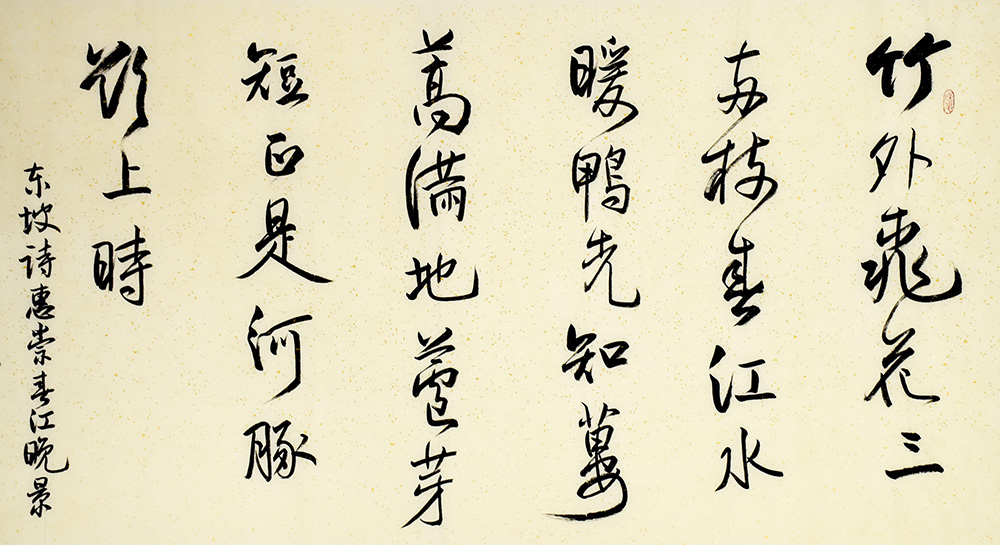 竹外桃花三
两枝春江水
暖鴨先知蔞
蒿滿地蘆芽
短正是河豚
欲上時
东坡诗惠崇春江晚景